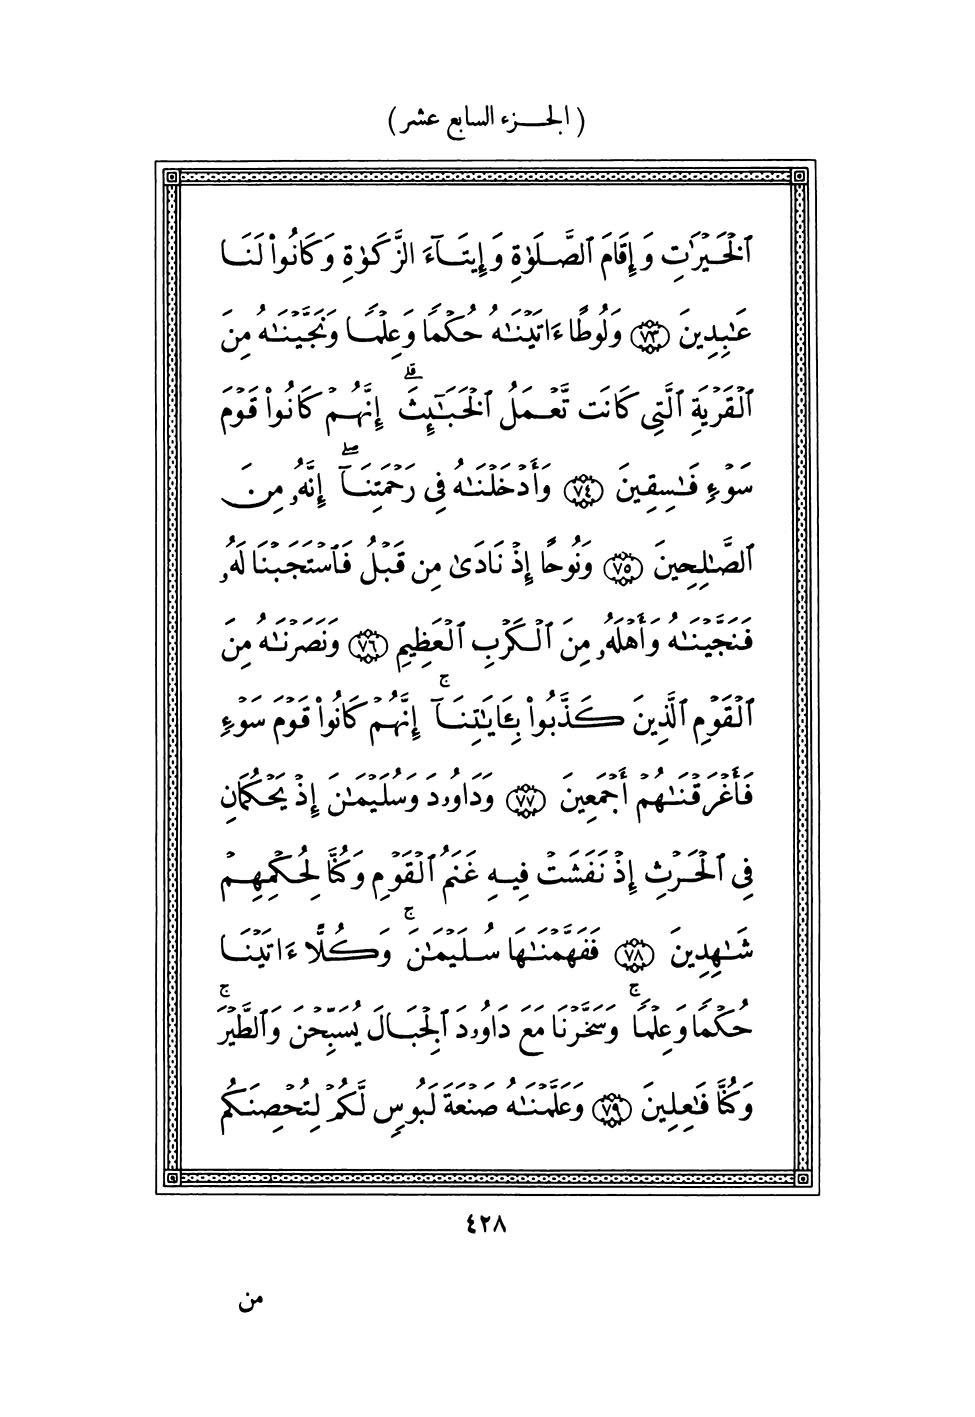 ( الجزء السابع عشر )
ٱلْخَيْرَٰتِ وَإِقَامَ ٱلصَّلَوٰةِ وَإِيتَآءَ ٱلزَّكَوٰةِ وَكَانُوا۟ لَنَا
عَٰبِدِينَ ﴿٧٣﴾ وَلُوطًا ءَاتَيْنَٰهُ حُكْمًا وَعِلْمًا وَنَجَّيْنَٰهُ مِنَ
ٱلْقَرْيَةِ ٱلَّتِى كَانَت تَّعْمَلُ ٱلْخَبَٰٓئِثَ ۗ إِنَّهُمْ كَانُوا۟ قَوْمَ
سَوْءٍ فَٰسِقِينَ ﴿٧٤﴾ وَأَدْخَلْنَٰهُ فِى رَحْمَتِنَآ ۖ إِنَّهُۥ مِنَ
ٱلصَّٰلِحِينَ ﴿٧٥﴾ وَنُوحًا إِذْ نَادَىٰ مِن قَبْلُ فَٱسْتَجَبْنَا لَهُۥ
فَنَجَّيْنَٰهُ وَأَهْلَهُۥ مِنَ ٱلْكَرْبِ ٱلْعَظِيمِ ﴿٧٦﴾ وَنَصَرْنَٰهُ مِنَ
ٱلْقَوْمِ ٱلَّذِينَ كَذَّبُوا۟ بِـَٔايَٰتِنَآ ۚ إِنَّهُمْ كَانُوا۟ قَوْمَ سَوْءٍ
فَأَغْرَقْنَٰهُمْ أَجْمَعِينَ ﴿٧٧﴾ وَدَاوُۥدَ وَسُلَيْمَٰنَ إِذْ يَحْكُمَانِ
فِى ٱلْحَرْثِ إِذْ نَفَشَتْ فِيهِ غَنَمُ ٱلْقَوْمِ وَكُنَّا لِحُكْمِهِمْ
شَٰهِدِينَ ﴿٧٨﴾ فَفَهَّمْنَٰهَا سُلَيْمَٰنَ ۚ وَكُلًّا ءَاتَيْنَا
حُكْمًا وَعِلْمًا ۚ وَسَخَّرْنَا مَعَ دَاوُۥدَ ٱلْجِبَالَ يُسَبِّحْنَ وَٱلطَّيْرَ ۚ
وَكُنَّا فَٰعِلِينَ ﴿٧٩﴾ وَعَلَّمْنَٰهُ صَنْعَةَ لَبُوسٍ لَّكُمْ لِتُحْصِنَكُم
٤٢٨
من